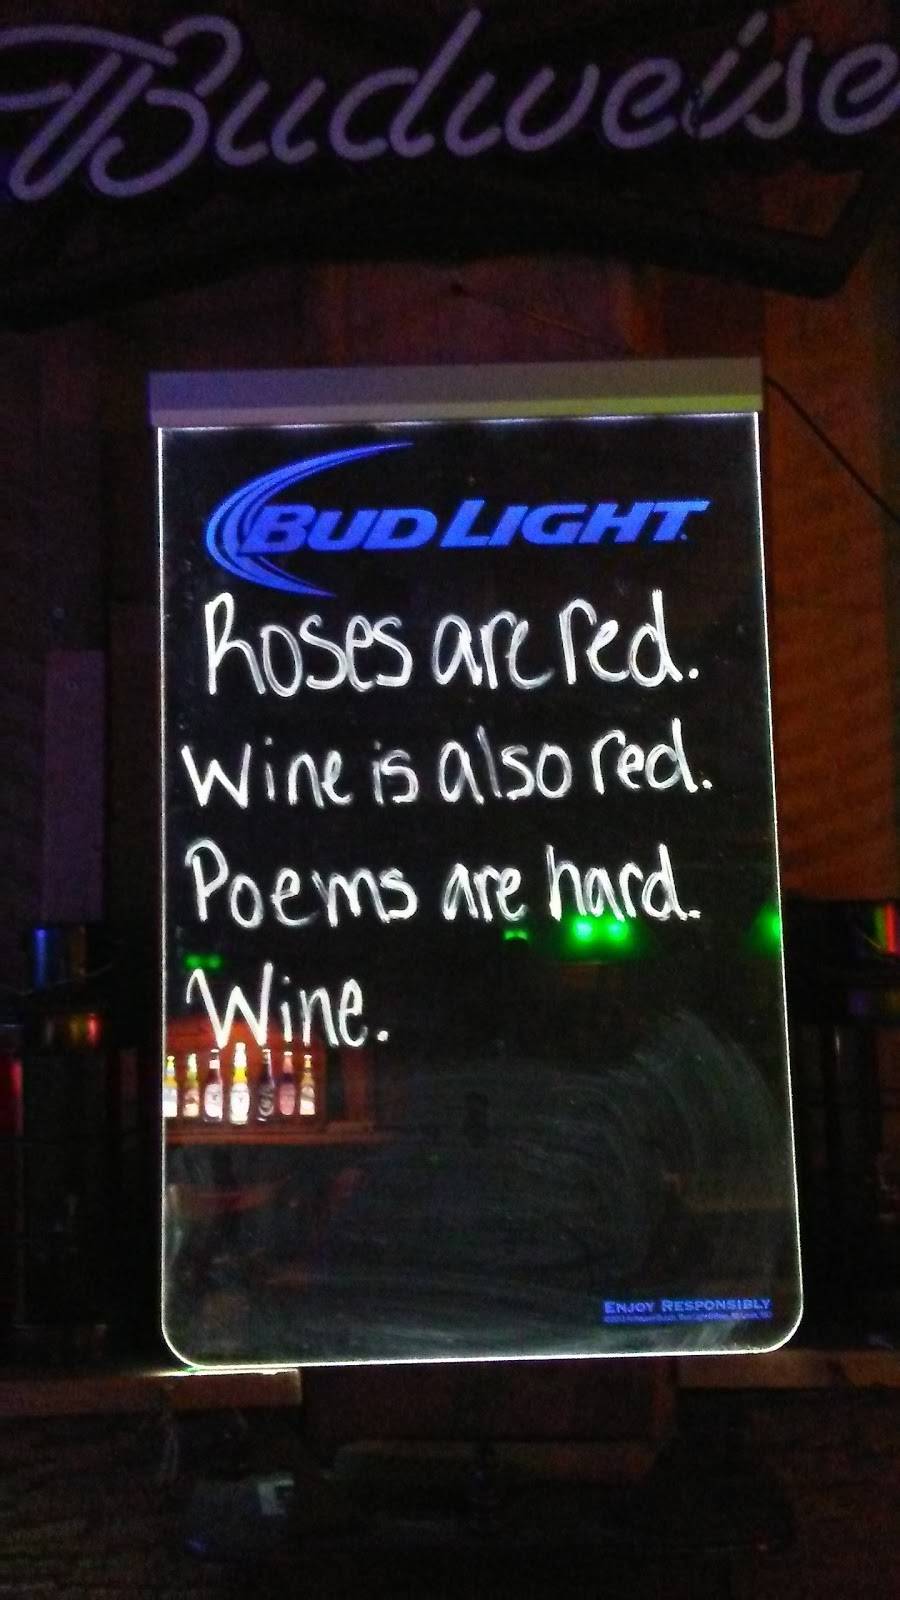 Budweise
BUD LIGHT
Roses are red.
Wine is also red.
Poems are hard.
Wine.
ENJOY RESPONSIBLY